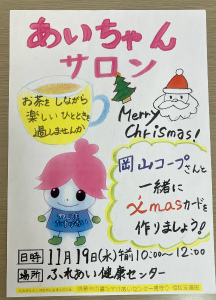 あいちゃん
サロン
お茶をしながら
楽しいひとときを
過しませんか
Merry
Christmas!
岡山コープさんと
一緒に
Xmasカードを
作りましょう!
日時 11月19日(水)午前10:00~12:00
場所 ふれあい健康センター